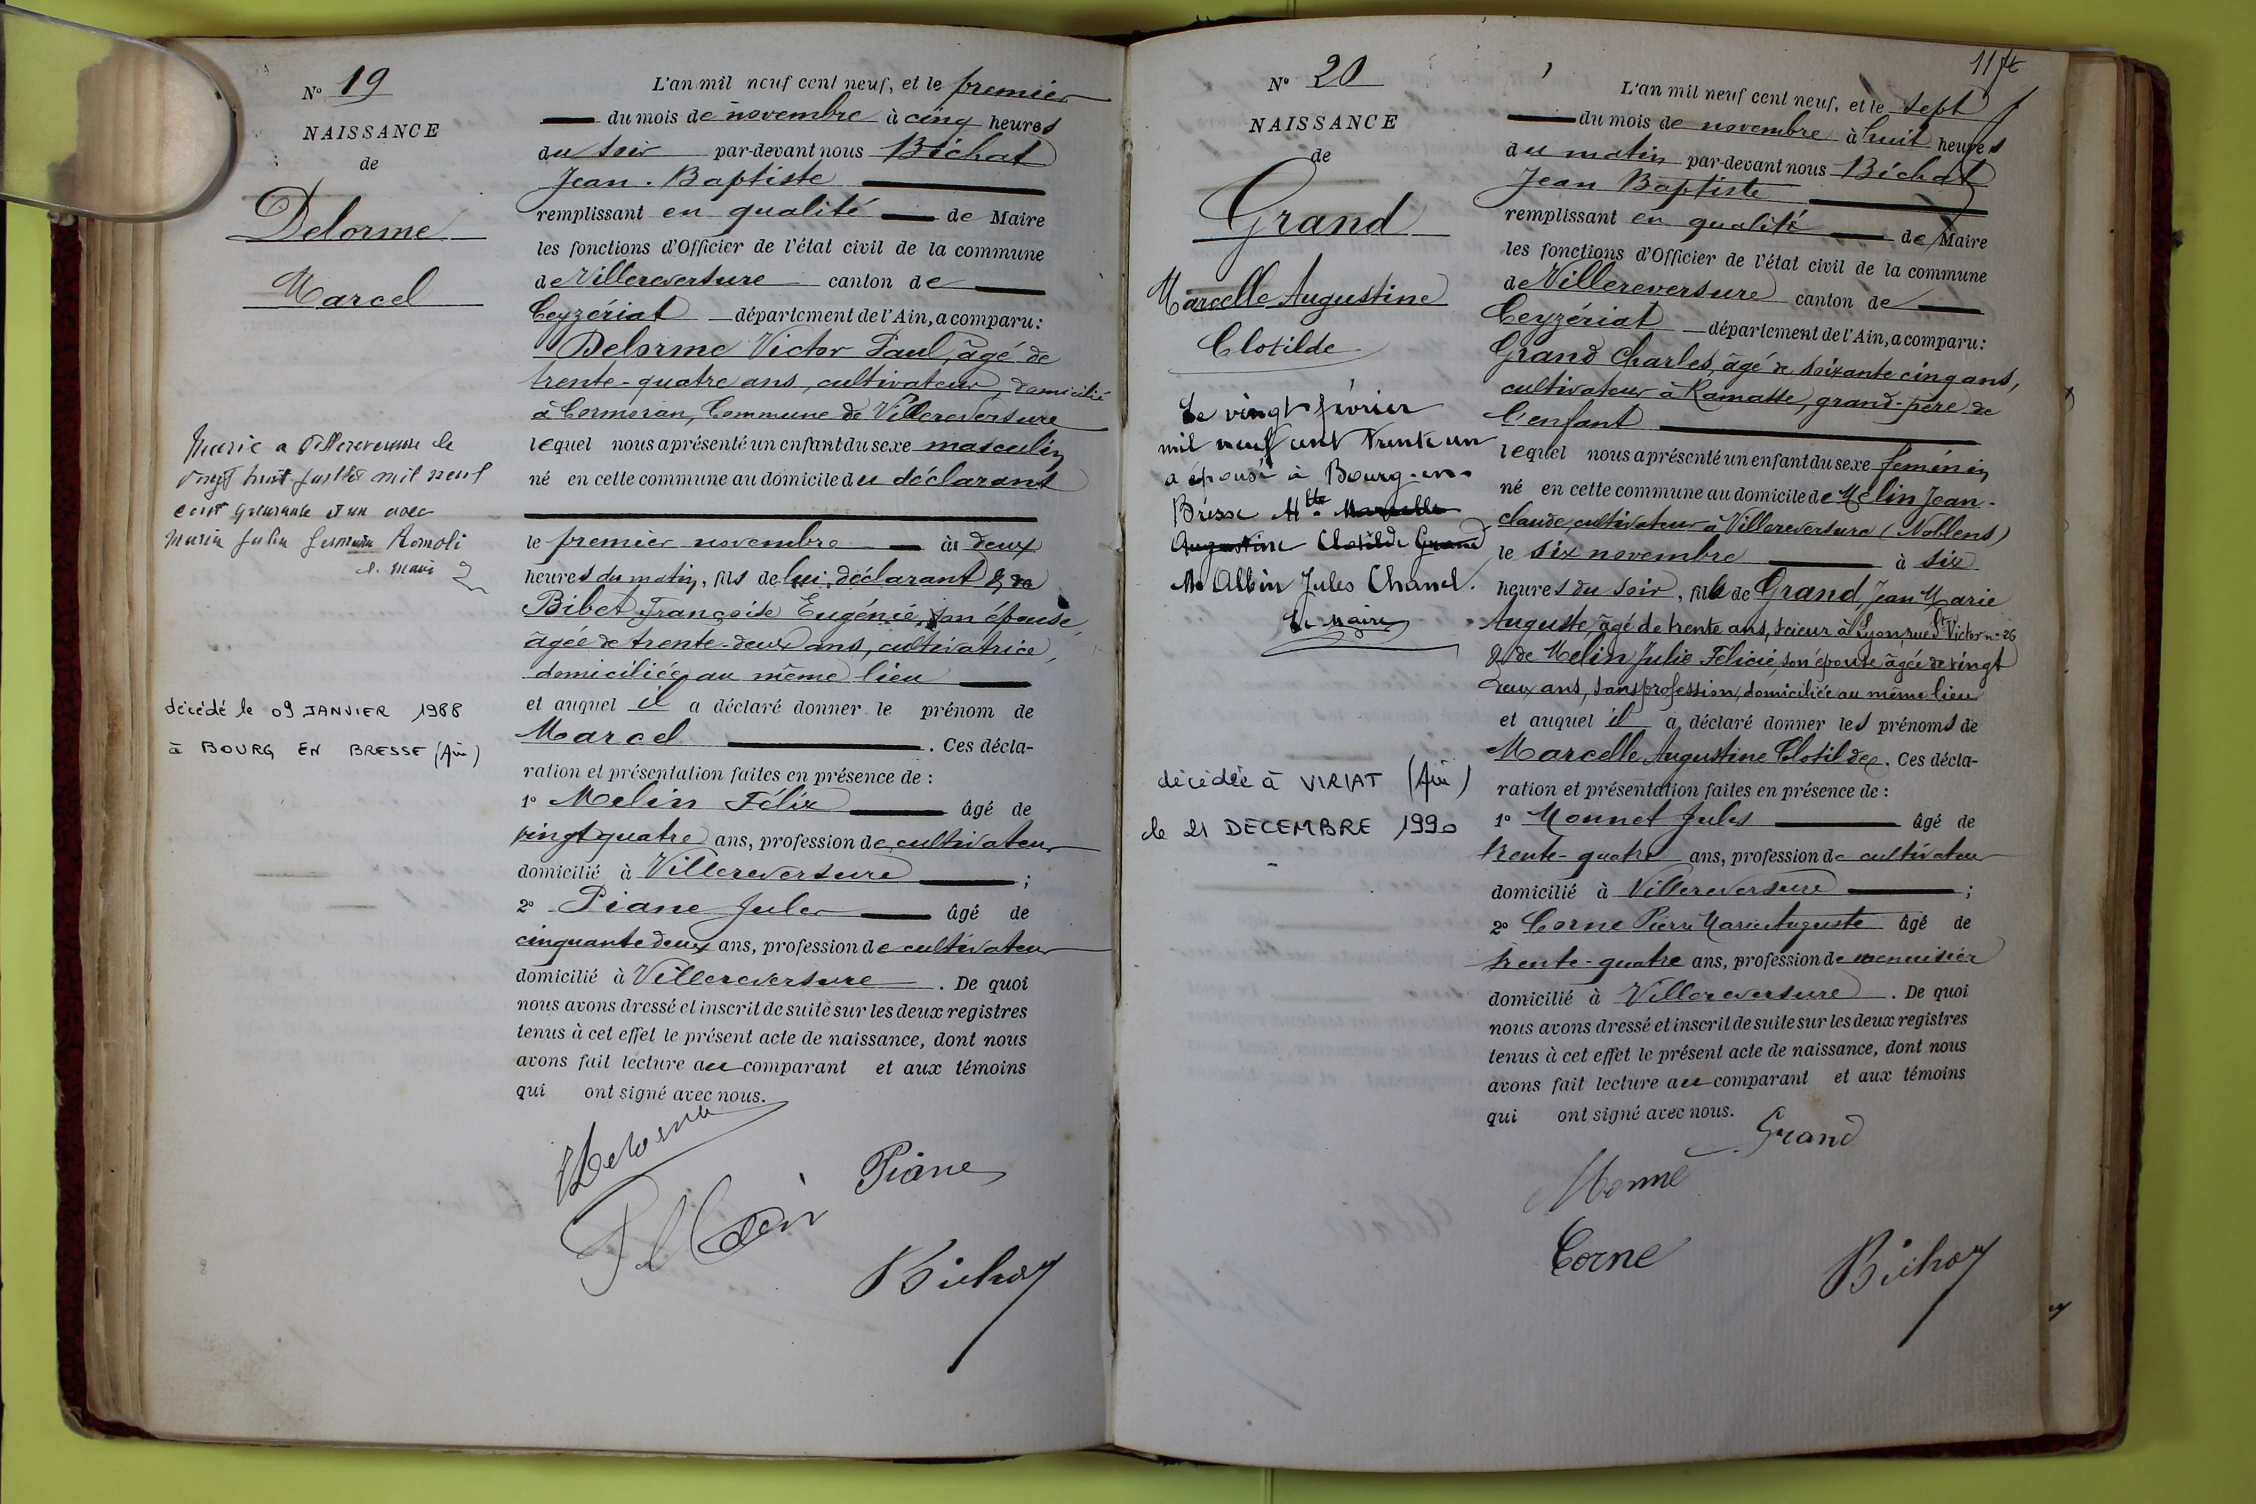 N° 19
NAISSANCE
de
Delorme
Marcel
Marié a Villereversure le
vingt huit juillet mil neuf
cent quarante et un avec
Maria Julia Romoli
décédé le 09 JANVIER 1988
à BOURG EN BRESSE (Ain)
L'an mil neuf cent neuf, et le premier
du mois de novembre à cinq heures
du soir par-devant nous Béchat
Jean-Baptiste
remplissant en qualité de Maire
les fonctions d'Officier de l'état civil de la commune
de Villereversure canton de
Ceyzériat département de l'Ain, a comparu:
Delorme Victor Paul, âgé de
trente-quatre ans, cultivateur, domicilié
à Cormoran, Commune de Villereversure
lequel nous a présenté un enfant du sexe masculin
né en cette commune au domicile du déclarant
le premier novembre à deux
heures du matin, fils de lui, déclarant & de
Bibet Françoise Eugénie, son épouse,
âgée de trente-deux ans, cultivatrice,
domiciliée au même lieu
et auquel il a déclaré donner le prénom de
Marcel. Ces décla-
ration et présentation faites en présence de :
1° Melin Félix âgé de
vingt quatre ans, profession de cultivateur
domicilié à Villereversure ;
2° Piane Jules âgé de
cinquante deux ans, profession de cultivateur
domicilié à Villereversure. De quoi
nous avons dressé et inscrit de suite sur les deux registres
tenus à cet effet le présent acte de naissance, dont nous
avons fait lecture au comparant et aux témoins
qui ont signé avec nous.
Delorme
Piane
Béchat
11
N° 20
NAISSANCE
de
Grand
Marcelle Augustine
Clotilde
Le vingt février
mil neuf cent trente un
a épousé à Bourg-en-
Bresse Mlle Marcelle
Augustine Clotilde Grand
M Albin Jules Chanel.
Le Maire
décédée à VIRIAT (Ain)
le 21 DECEMBRE 1990
L'an mil neuf cent neuf, et le sept
du mois de novembre à huit heures
du matin par-devant nous Béchat
Jean Baptiste
remplissant en qualité de Maire
les fonctions d'Officier de l'état civil de la commune
de Villereversure canton de
Ceyzériat département de l'Ain, a comparu:
Grand Charles, âgé de soixante cinq ans,
cultivateur à Ramasse, grand-père de
l'enfant
lequel nous a présenté un enfant du sexe féminin
né en cette commune au domicile de Melin Jean-
claude cultivateur à Villereversure (Noblens)
le six novembre à six
heures du soir, fille de Grand, Jean Marie
Auguste, âgé de trente ans, scieur à Lyon rue St Victor n° 26
& de Melin Julie Félicie, son épouse âgée de vingt
deux ans, sans profession, domiciliée au même lieu
et auquel il a déclaré donner les prénoms de
Marcelle Augustine Clotilde. Ces décla-
ration et présentation faites en présence de :
1° Monnet Jules âgé de
trente-quatre ans, profession de cultivateur
domicilié à Villereversure ;
2° Corne Pierre Marie Auguste âgé de
trente-quatre ans, profession de menuisier
domicilié à Villereversure. De quoi
nous avons dressé et inscrit de suite sur les deux registres
tenus à cet effet le présent acte de naissance, dont nous
avons fait lecture au comparant et aux témoins
qui ont signé avec nous.
Grand
Monné
Corne
Béchat